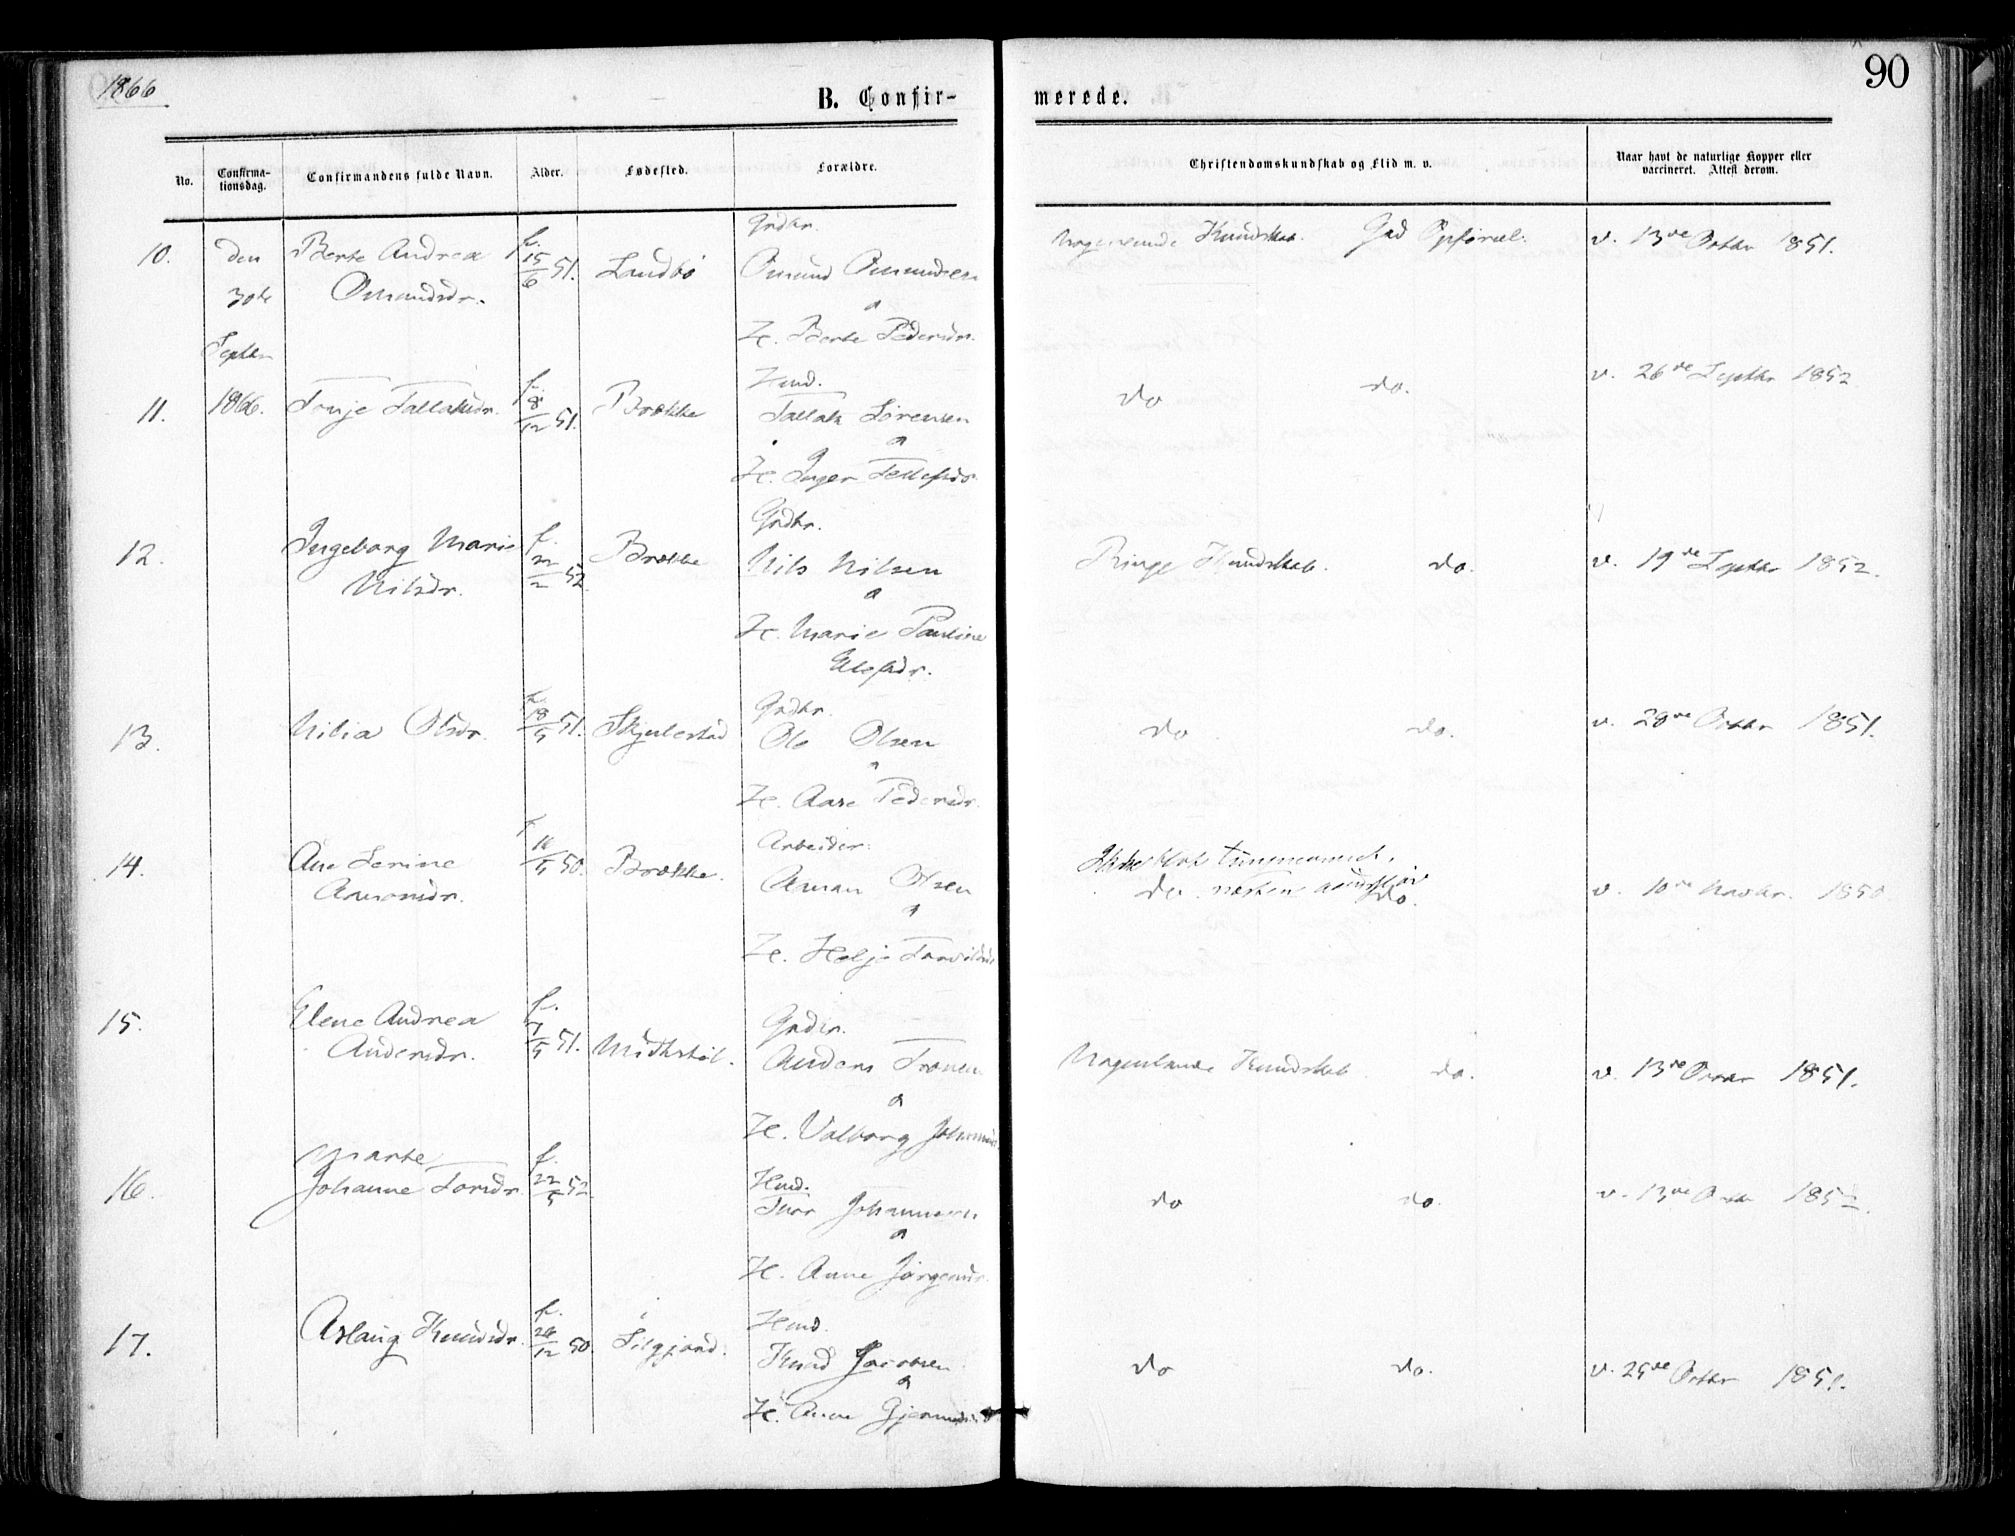 1866
90
B. Confir-
merede.
No.
Confirma-
tionsdag.
Confirmandens fulde Navn.
Alder.
Fødested.
Forældre.
Christendomskundskab og Flid m. v.
Naar havt de naturlige Kopper eller
vaccineret. Attest derom.
10.
den
30te
Septbr
1866.
Berte Andrea
Omundsdr.
f.
15/6 51.
Landbö
Grdbr.
Omund Omundsen
o
H. Berte Pedersdr.
Nogenlunde Kundskab. God Opførsel.
v. 13de Octbr 1851.
11.
Tonje Tallaksdr.
f.
8/12 51.
Brække
Hmd.
Tallak Sörensen
o
H. Inger Tellefsdr.
do do.
v. 26de Septbr 1852.
12.
Ingeborg Marie
Nilsdr.
f.
22/2 52.
Brække
Grdbr.
Nils Nilsen
o
H. Marie Pauline
Ringe Kundskab. do.
v. 19de Septbr 1852.
13.
Nilia Olsdr.
f.
18/5 51.
Skjulestad
Grdbr.
Ole Olsen
o
H. Aase Pedersdr.
do do.
v. 28de Octbr 1851.
14.
Ane Serine
Amonsdr.
f.
16/5 50.
Brække.
Arbeider.
Aman Olsen
o
H. Helje
do. næsten do.
v. 10de Novbr. 1850
15.
Elene Andrea
Andersdr.
f.
7/5 51.
Grdbr.
Anders
o
H. Valborg
Nogenlunde Kundskab do.
v. 13de Octbr 1851.
16.
Marte
Johanne Torsdr.
f.
22/5 52.
Hmd.
Johannesen
o
H. Anne Jörgensdr.
do do.
v. 13de Octbr 1852.
17.
Aslaug Knudsdr.
f.
28/12 50.
Hmd.
Knud Jacobsen
o
H. Anne
do do.
v. 25de Octbr 1851.